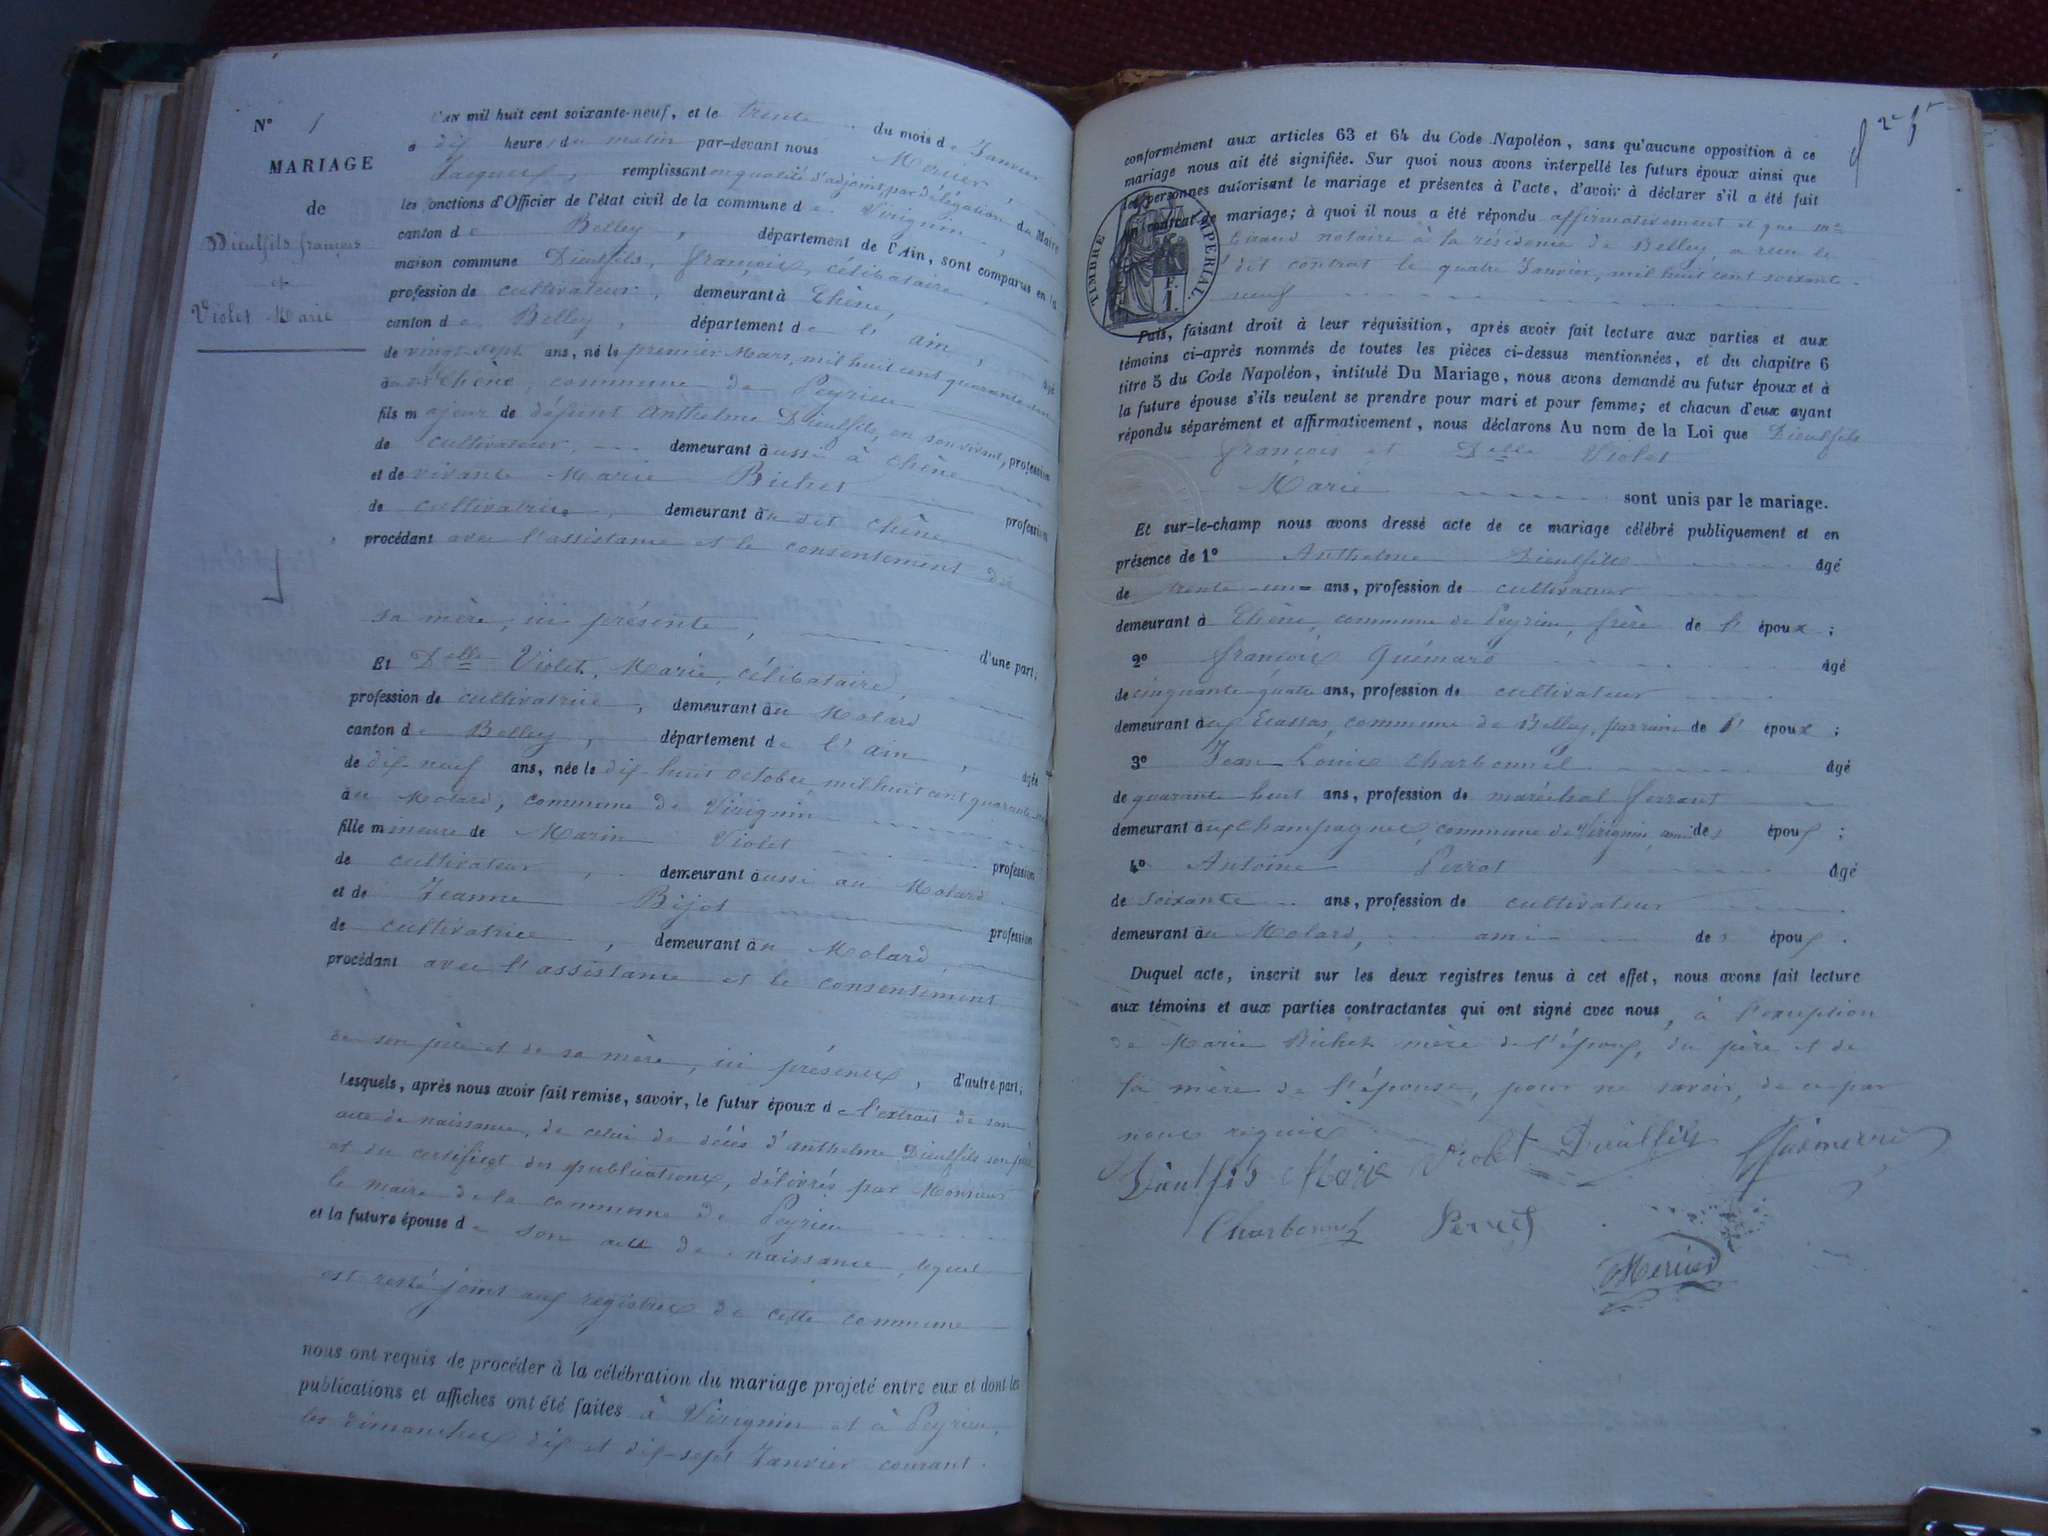 N° 1
MARIAGE
de
Dieulfils françois
et
Violet Marie
L'an mil huit cent soixante-neuf, et le trente du mois de Janvier
à dix heures du matin par-devant nous
Jacques, remplissant en qualité d'adjoint par délégation du Maire
les fonctions d'Officier de l'état civil de la commune de Virignin,
canton de Belley, département de l'Ain, sont comparus en la
maison commune Dieulfils, françois, célibataire,
profession de cultivateur, demeurant à Chêne,
canton de Belley, département de l'ain, âgé
de vingt-sept ans, né le premier Mars mil huit cent quarante-deux
à Chêne, commune de Peyrieu
fils majeur de défunt Anthelme Dieulfils, en son vivant, profession
de cultivateur, demeurant aussi à Chêne
et de vivante Marie Bichet profession
de cultivatrice, demeurant au dit Chêne
procédant avec l'assistance et le consentement de
sa mère, ici présente, d'une part;
Et Delle Violet, Marie, célibataire,
profession de cultivatrice, demeurant au Molard
canton de Belley, département de l'ain, âgée
de dix-neuf ans, née le dix-huit octobre mil huit cent quarante-neuf
au Molard, commune de Virignin
fille mineure de Marin Violet profession
de cultivateur, demeurant aussi au Molard
et de Jeanne Bijot profession
de cultivatrice, demeurant au Molard,
procédant avec l'assistance et le consentement
de son père et de sa mère, ici présents, d'autre part;
Lesquels, après nous avoir fait remise, savoir, le futur époux de l'extrait de son
acte de naissance, de celui de décès d'anthelme Dieulfils son père
et du certificat des publications, délivrés par Monsieur
le maire de la commune de Peyrieu
et la future épouse de son acte de naissance, lequel
est resté joint aux registres de cette commune
nous ont requis de procéder à la célébration du mariage projeté entre eux et dont les
publications et affiches ont été faites à Virignin et à Peyrieu,
les dimanches dix et dix-sept Janvier courant.
conformément aux articles 63 et 64 du Code Napoléon, sans qu'aucune opposition à ce
mariage nous ait été signifiée. Sur quoi nous avons interpellé les futurs époux ainsi que
les personnes autorisant le mariage et présentes à l'acte, d'avoir à déclarer s'il a été fait
un contrat de mariage; à quoi il nous a été répondu affirmativement et que me
notaire à la résidence de Belley, a reçu le
dit contrat le quatre Janvier, mil huit cent soixante-
neuf
TIMBRE IMPÉRIAL.
F.
1.
Puis, faisant droit à leur réquisition, après avoir fait lecture aux parties et aux
témoins ci-après nommés de toutes les pièces ci-dessus mentionnées, et du chapitre 6
titre 5 du Code Napoléon, intitulé Du Mariage, nous avons demandé au futur époux et à
la future épouse s'ils veulent se prendre pour mari et pour femme; et chacun d'eux ayant
répondu séparément et affirmativement, nous déclarons Au nom de la Loi que Dieulfils
françois et Delle Violet
Marie sont unis par le mariage.
Et sur-le-champ nous avons dressé acte de ce mariage célébré publiquement et en
présence de 1° Anthelme Dieulfils âgé
de trente-un ans, profession de cultivateur
demeurant à Chêne, commune de Peyrieu, frère de l'époux;
2° françois Guémard âgé
de cinquante-quatre ans, profession de cultivateur
demeurant aux Ecassas, commune de Belley, parrain de l'époux;
3° Jean Louis Charbonnel âgé
de quarante huit ans, profession de maréchal ferrant
demeurant aux Champagnes, commune de Virignin, ami des époux;
4° Antoine Perrot âgé
de soixante ans, profession de cultivateur
demeurant au Molard, ami des époux.
Duquel acte, inscrit sur les deux registres tenus à cet effet, nous avons fait lecture
aux témoins et aux parties contractantes qui ont signé avec nous, à l'exception
de Marie Bichet mère de l'époux, du père et de
la mère de l'épouse, pour ne savoir, de ce par
nous requis
Dieulfils Marie Violet Dieulfils
Charbonnel Perrot
Mercier